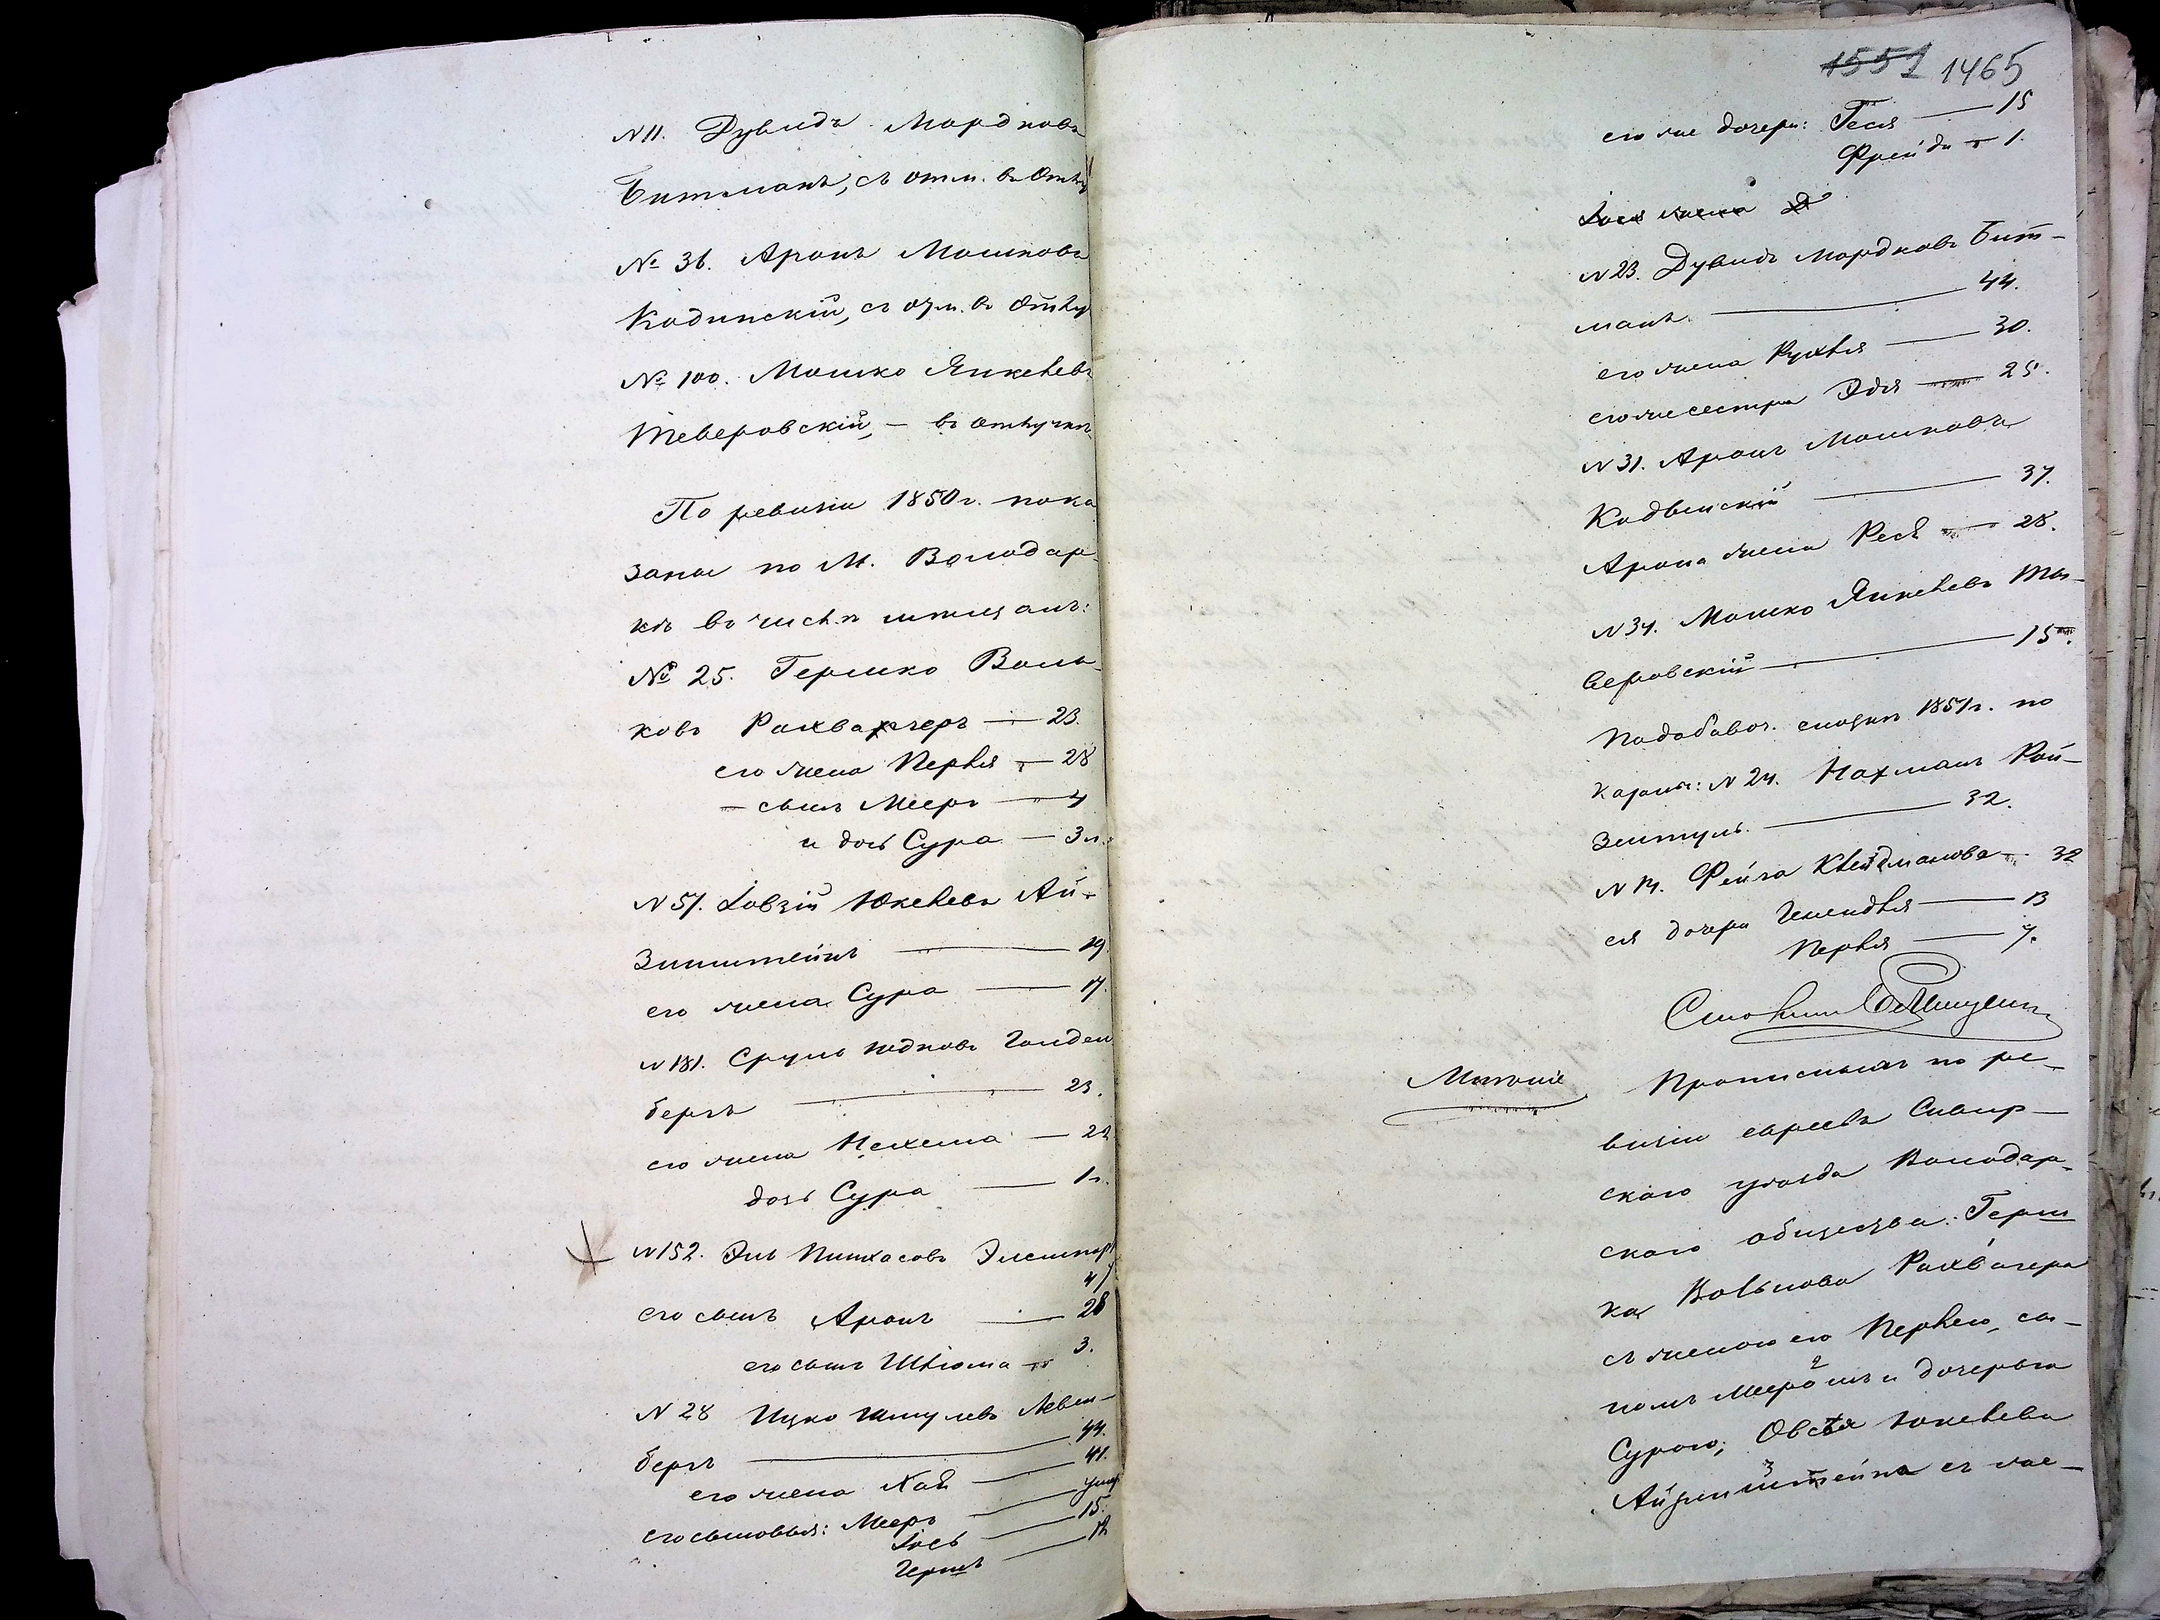 N 11. Дувидъ Мордковъ
Битманъ, съ отм. въ отлу
№ 36. Аронъ Мошковъ
Кодинскій, съ отм. въ отлу
№ 100. Мошко Янкелевъ
Теверовскій, — въ отлучкѣ
По ревизіи 1850 г. пока
заны по М. Володар-
кѣ въ числѣ мѣщанъ:
№ 25. Гершко Воль-
ковъ Рахвачеръ — 23.
его жена Перля — 28
— сынъ Мееръ — 4
и дочь Сура — 3 л.
N 57. Іовзій Юкелевъ Ай-
зинштейнъ — 19.
его жена Сура — 17.
N 181. Сруль Юдковъ Голден
бергъ — 23.
его жена Нехема — 22
дочь Сура — 1 г.
N 152. Эль Пинхасовъ
47
его сынъ Аронъ — 28
его сынъ Шлёма — 3.
N 28 Ицко Шмулевъ Левен-
бергъ — 44.
его жена Хая — 41.
его сыновья: Мееръ — умер
Іось — 15.
Гершъ — 12
1551 1465
его же дочери: Геся — 15
Фрейда — 1.
Іося жена
N 23. Дувидъ Мордковъ Бит-
манъ — 44.
его жена Рухля — 30.
его же сестра Эдя — 25.
N 31. Аронъ Мошковъ
Кодынскій — 37.
Арона жена Рися — 28.
N 34. Мошко Янкелевъ Ты-
веровскій — 15.
По добавоч. сказкѣ 1851 г. по
N 24. Нахманъ Рой-
зентуль — 32.
N 14. Фейга Клейдманова — 32
ея дочери Генендля — 13
Перля — 7.
Мнѣніе
Прописныхъ по ре-
визіи евреевъ Сквир-
скаго уѣзда Володар-
скаго общества: Герш
ка Волькова Рахвачера
съ женою его Перлею, сы-
номъ Мееромъ и дочерью
Сурою; 2 Овсѣя Юкелева
Айзинштейна съ же-